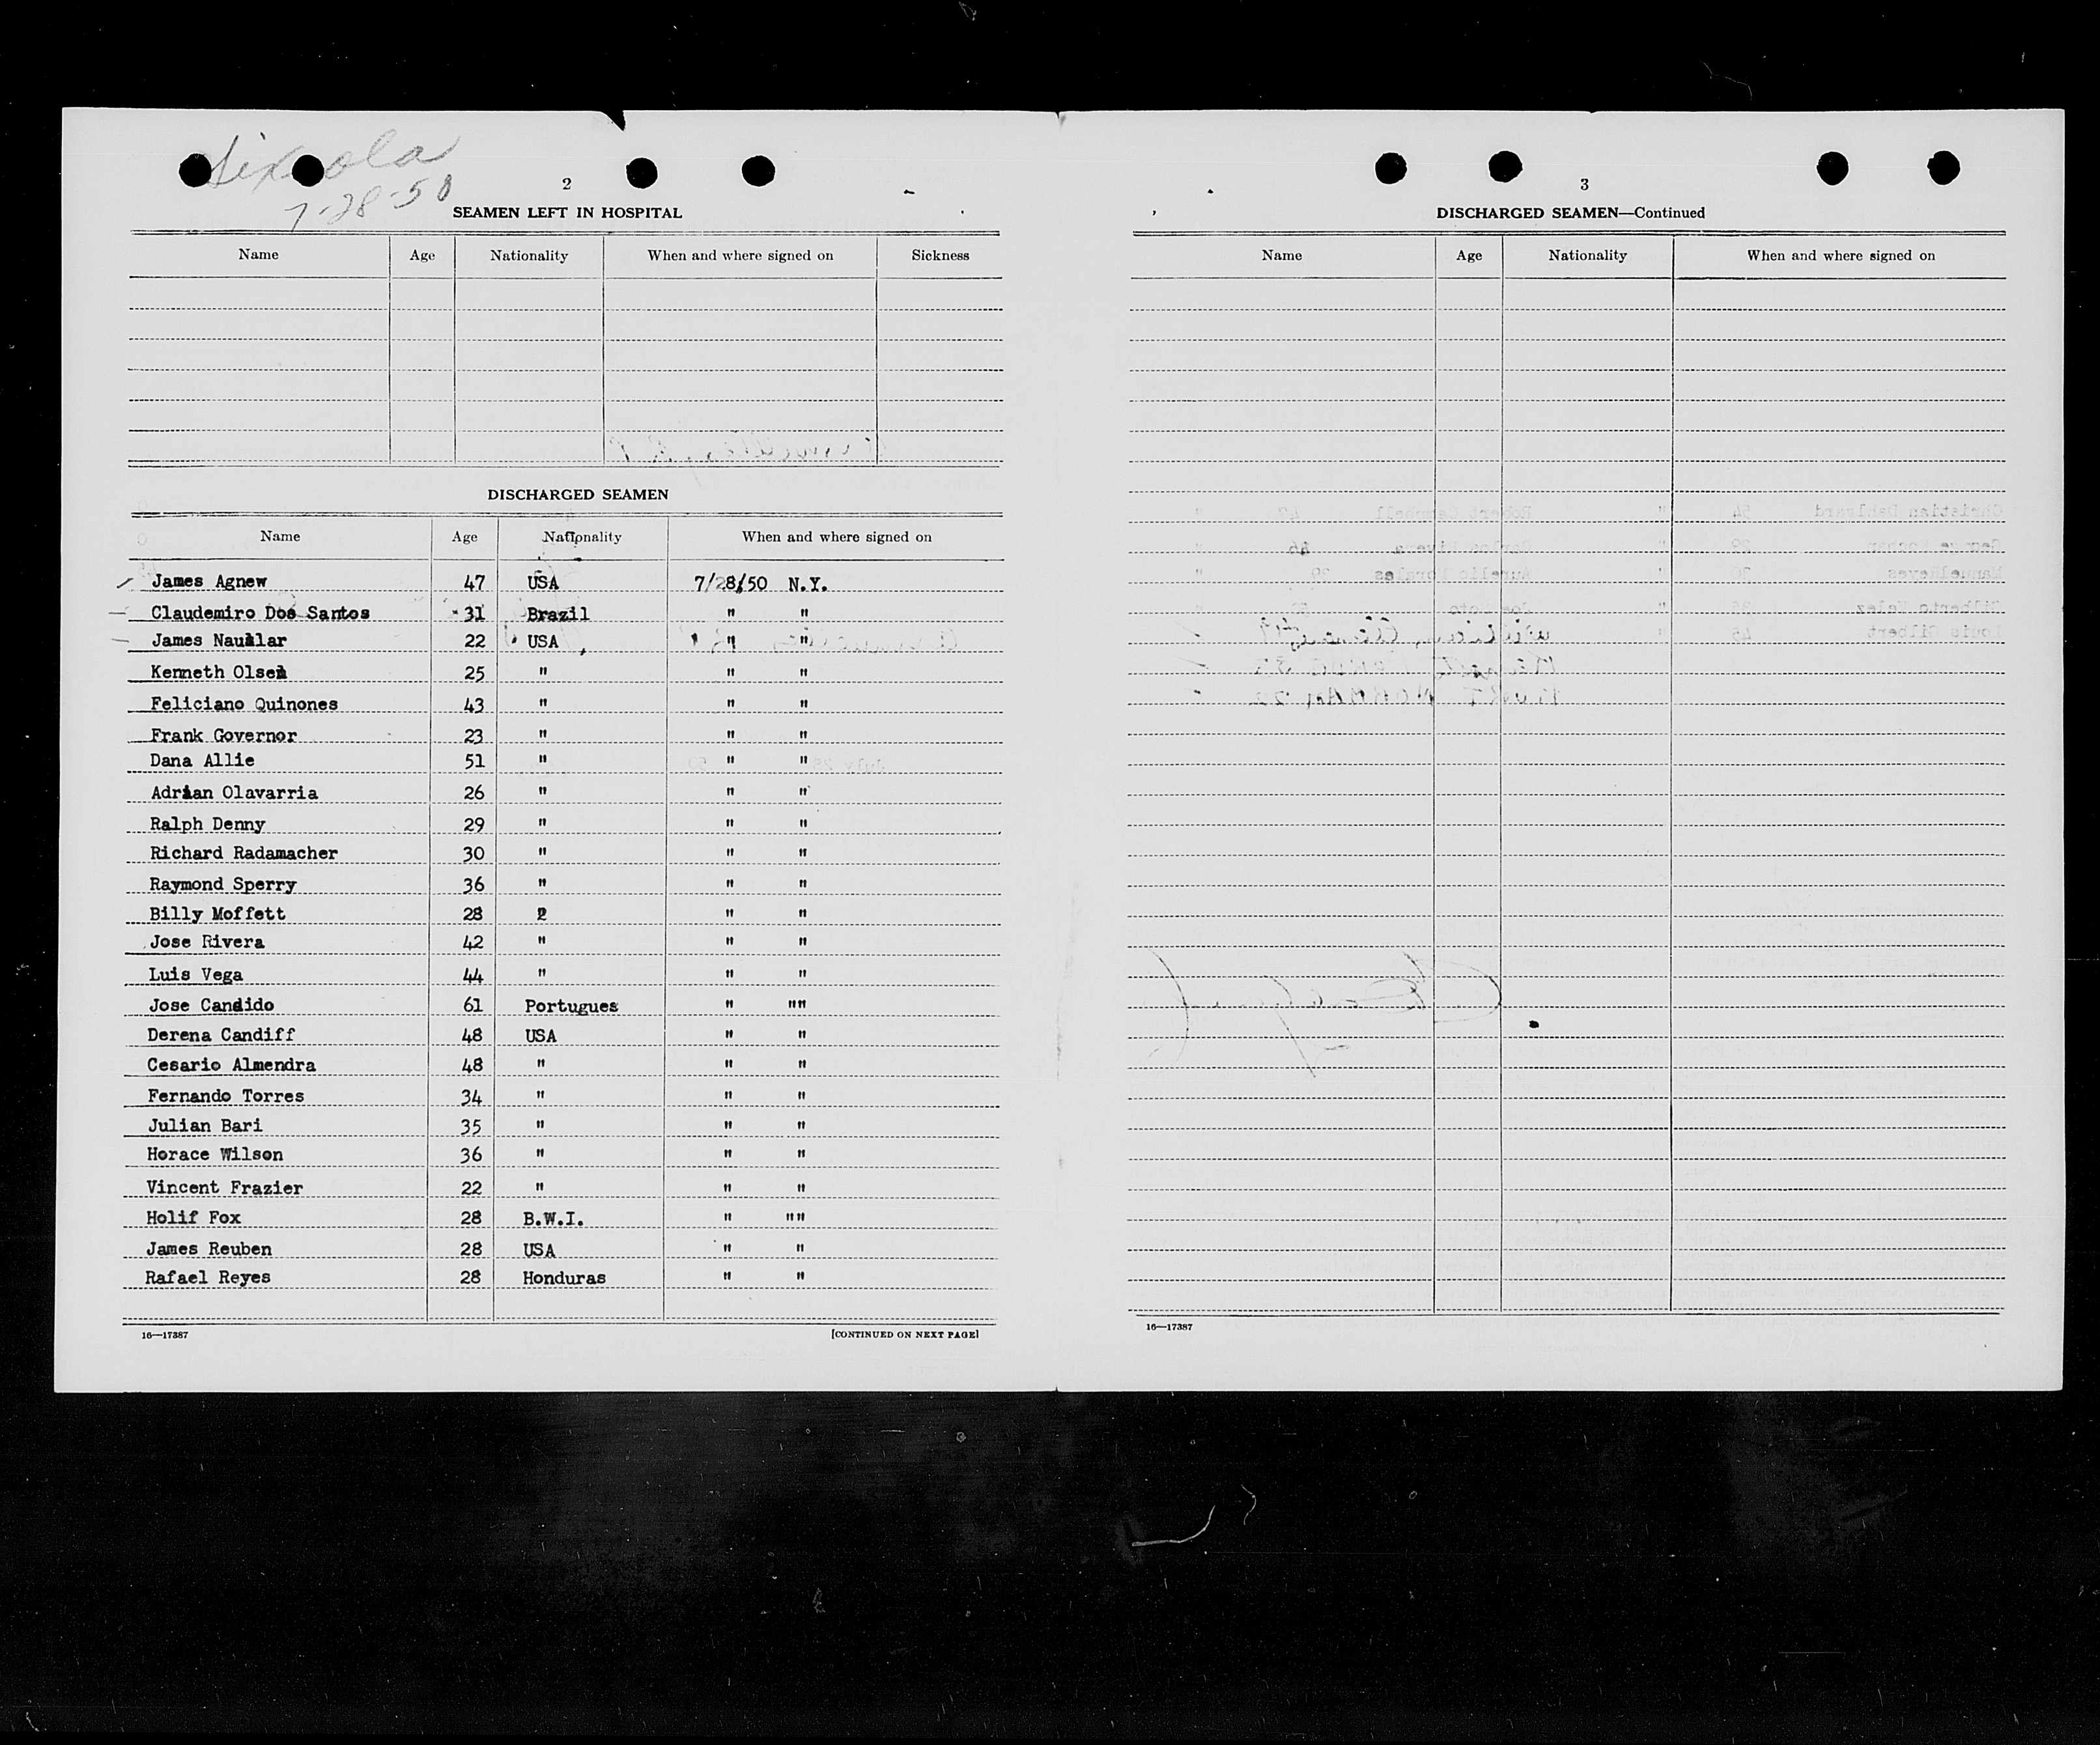 7-28-50
2
SEAMEN LEFT IN HOSPITAL
Name Age Nationality When and where signed on Sickness
DISCHARGED SEAMEN
Name Age Nationality When and where signed on
James Agnew 47 USA 7/28/50 N.Y.
Claudemiro Dos Santos 31 Brazil " "
James Naualar 22 USA " "
Kenneth Olsen 25 " " "
Feliciano Quinones 43 " " "
Frank Governor 23 " " "
Dana Allie 51 " " "
Adrian Olavarria 26 " " "
Ralph Denny 29 " " "
Richard Radamacher 30 " " "
Raymond Sperry 36 " " "
Billy Moffett 28 2 " "
Jose Rivera 42 " " "
Luis Vega 44 " " "
Jose Candido 61 Portugues " ""
Derena Candiff 48 USA " "
Cesario Almendra 48 " " "
Fernando Torres 34 " " "
Julian Bari 35 " " "
Horace Wilson 36 " " "
Vincent Frazier 22 " " "
Holif Fox 28 B.W.I. " ""
James Reuben 28 USA " "
Rafael Reyes 28 Honduras " "
16—17387 [CONTINUED ON NEXT PAGE]
3
DISCHARGED SEAMEN—Continued
Name Age Nationality When and where signed on
16—17387